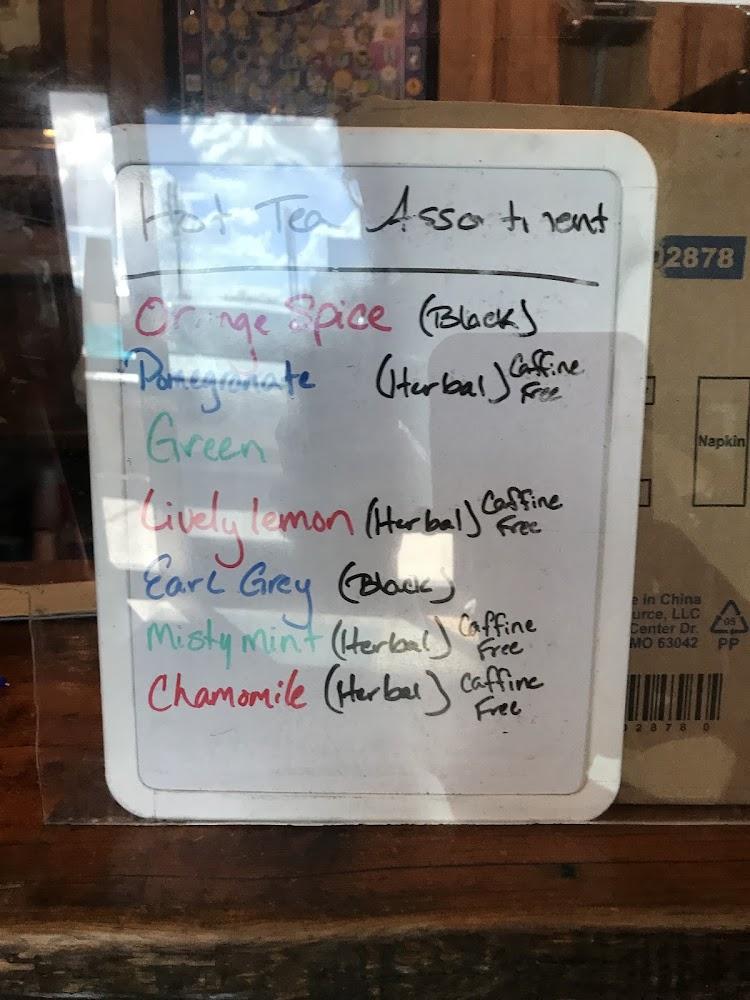 Hot Tea Assortment
Orange Spice (Black)
Pomegranate (Herbal) Caffine Free
Green
Lively lemon (Herbal) Caffine Free
Earl Grey (Black)
Misty mint (Herbal) Caffine Free
Chamomile (Herbal) Caffine Free
2878
Napkin
e in China
urce, LLC
Center Dr.
MO 63042
05
PP
2 8 7 8 0